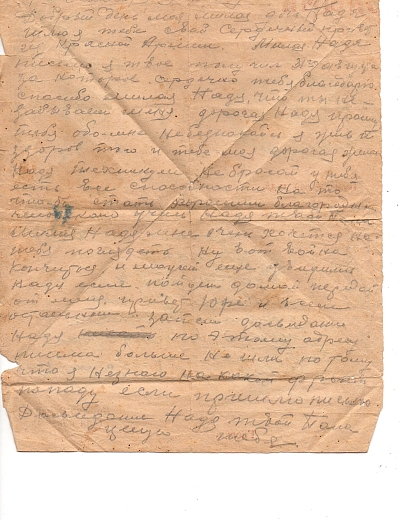 Добрый день моя милая дочь Надя
шлю я тебе свой сердечный привет
из Красной Армии. Милая Надя
письмо я твое получил
за которое сердечно тебя благодарю
спасибо милая Надя, что ты не
забываешь меня. дорогая Надя прошу
тебя обо мне не беспокойся я жив и
здоров того и тебе моя дорогая желаю
Надя не бросай у тебя
есть все способности на то
чтобы стать
учись Надя твой
Надя мне очень хочется на
тебя поглядеть ну вот война
кончиться и может еще увидимся
Надя если пойдешь домой передай
от меня привет Юре и всем
остальным и досвидания
Надя по этому адресу
письма больше не шли потому
что я незнаю на какой фронт
попаду если пришлю письмо
Досвидание Надя твой Папа
целую тебя